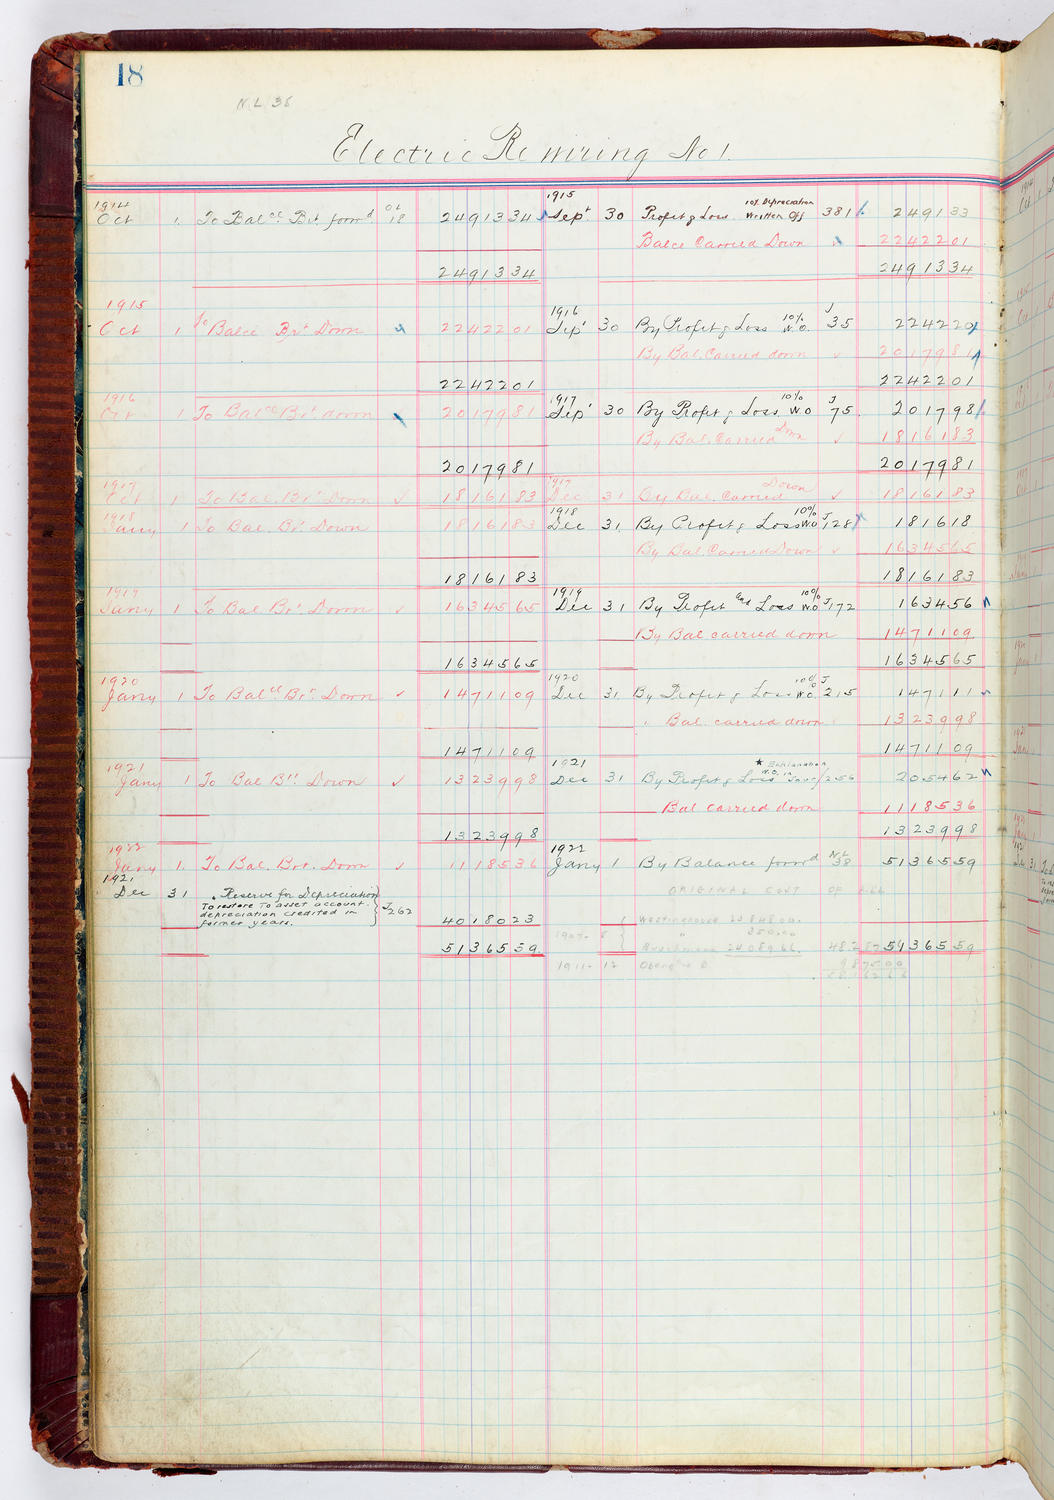 18
N.L. 38
Electric Rewiring No 1.
1914 1915
Oct 1. To Balce Brt forwd OL 18 2491334 Sept 30 Profit & Loss 10% Depreciation Written Off 381 249133
Balce Carried Down 2242201
2491334 2491334
1915 1916
Oct 1 To Balce Brt Down 2242201 Sep' 30 By Profit & Loss 10% W.O. J 35 224220
By Bal. Carried down 2017981
2242201 2242201
1916 1917
Oct 1 To Balce Brt down 2017981 Sep' 30 By Profit & Loss 10% W.O J 75. 201798
By Bal. Carried down 1816183
2017981 2017981
1917 1917
Oct 1 To Bal. Brt Down 1816183 Dec 31 By Bal. Carried Down 1816183
1918 1918
Jany 1 To Bal. Brt Down 1816183 Dec 31. By Profit & Loss 10% W.O J 128 181618
By Bal. Carried Down 1634565
1816183 1816183
1919 1919
Jany 1 To Bal Brt Down 1634565 Dec 31 By Profit and Loss 10% W.O J 172 163456
By Bal carried down 1471109
1634565 1634565
1920 1920
Jany 1 To Balce Brt Down 1471109 Dec 31. By Profit & Loss 10% W.O. J 215 147111
" Bal. carried down 1323998
1471109 1471109
1921 1921
Jany 1 To Bal Brt Down 1323998 Dec 31 By Profit & Loss * Explanation W.O. in J 256 205462
Bal carried down 1118536
1323998 1323998
1922 1922
Jany 1. To Bal. Brt. Down 1118536 Jany 1 By Balance forwd NL 38 5136559
1921
Dec 31 Reserve for Depreciation J 262 4018023
To restore To asset account
depreciation credited in
former years.
ORIGINAL COST OF
Westinghouse
250.00
1907- 8
5136559 5136559
1911- 12 987500